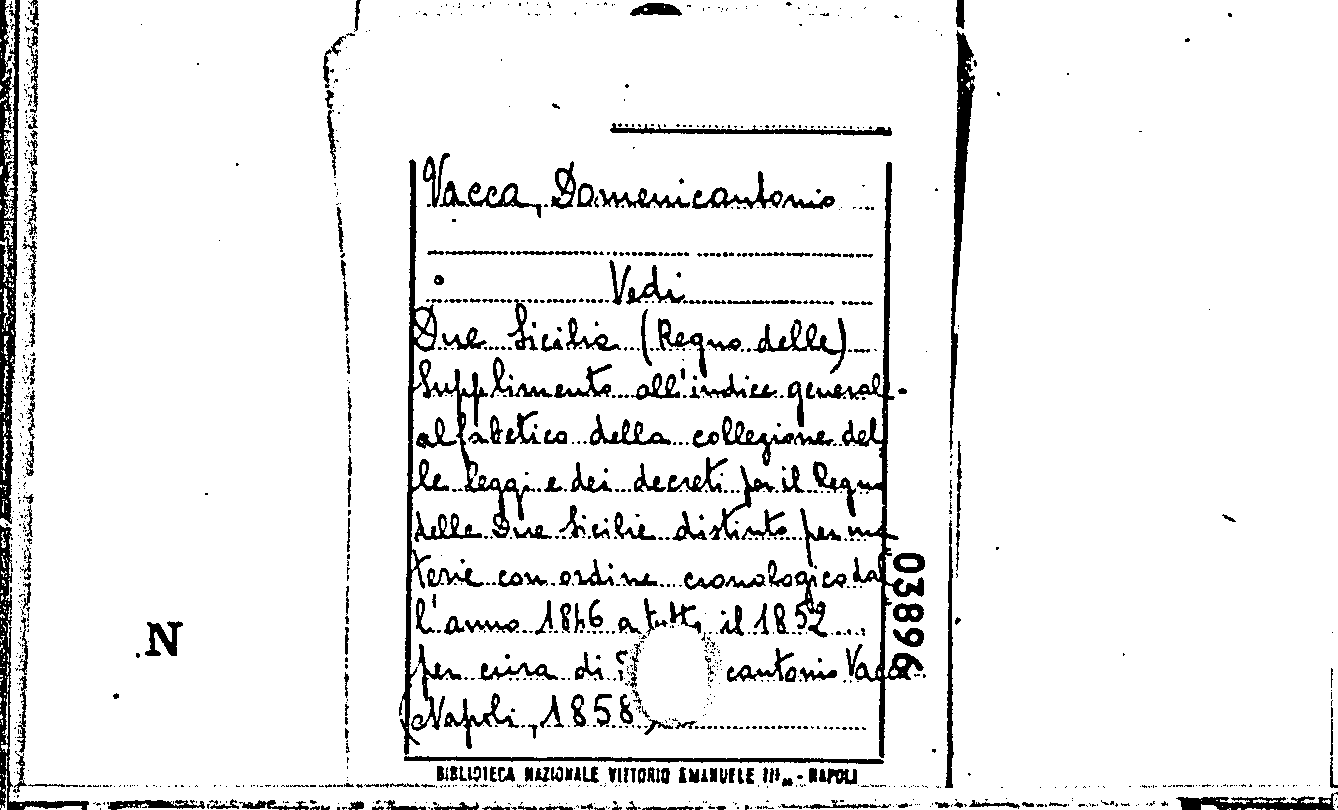 Vacca, Domenicantonio
Vedi
Due Sicilie (Regno delle)
Supplimento all'indice generale
alfabetico della collezione del
le leggi e dei decreti per il Regno
delle Due Sicilie distinto per ma
terie con ordine cronologico dal
l'anno 1846 a tutto il 1852
per cura di cantonio Vacca
(Napoli, 1858)
03896
N
BIBLIOTECA NAZIONALE VITTORIO EMANUELE III - NAPOLI